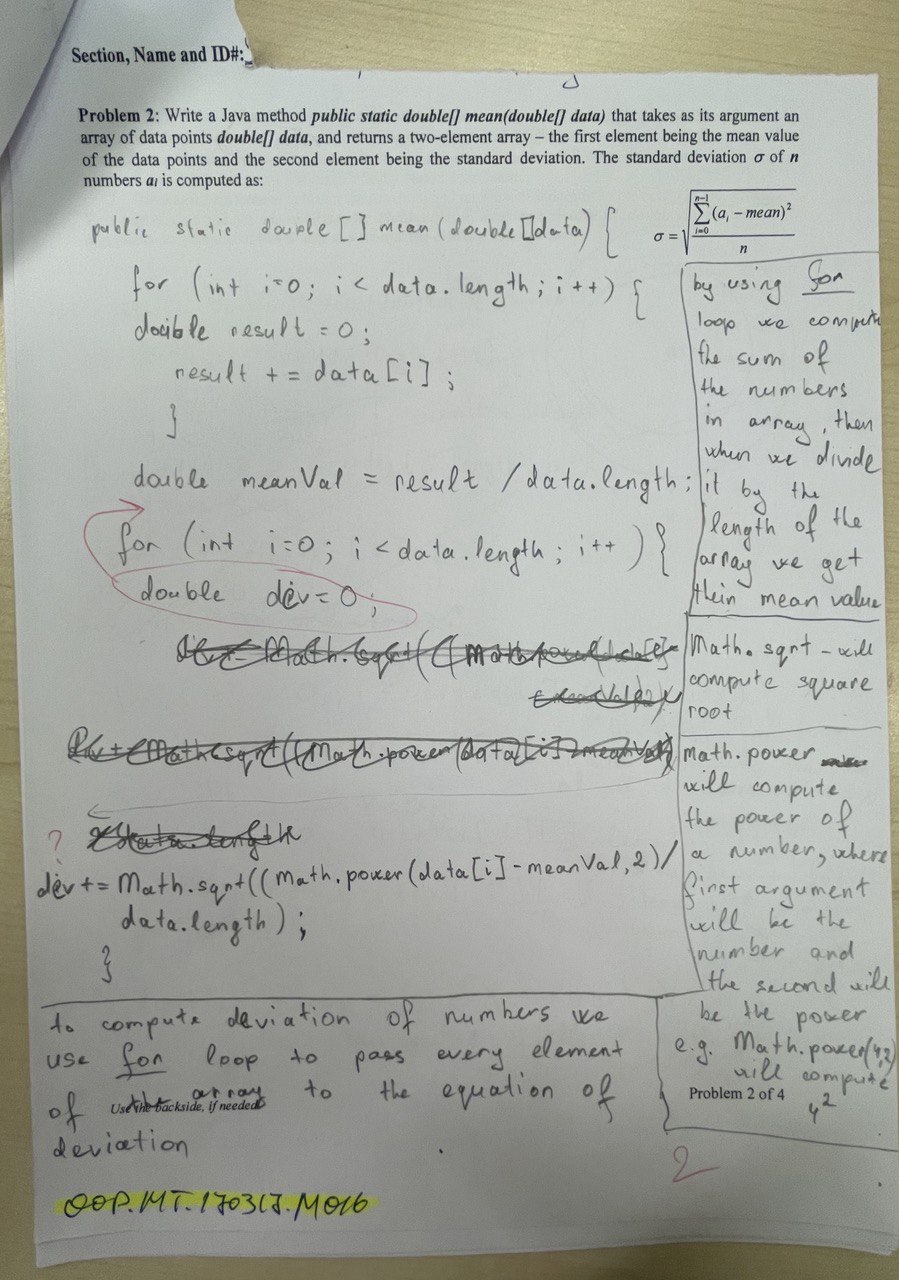 Section, Name and ID#:
Problem 2: Write a Java method public static double[] mean(double[] data) that takes as its argument an
array of data points double[] data, and returns a two-element array – the first element being the mean value
of the data points and the second element being the standard deviation. The standard deviation σ of n
numbers ai is computed as:
σ = √( Σ (ai – mean)² / n )
n–1
i=0
public static double [] mean (double []data) {
for (int i=0; i < data.length; i++) {
double result = 0;
result += data[i];
}
double meanVal = result / data.length;
for (int i=0; i < data.length; i++) {
double dev = 0;
?
dev += Math.sqrt((Math.power(data[i]-meanVal,2)/
data.length);
}
by using for
loop we compute
the sum of
the numbers
in array, then
when we divide
it by the
length of the
array we get
thein mean value
Math.sqrt - will
compute square
root
Math.power
will compute
the power of
a number, where
first argument
will be the
number and
the second will
be the power
e.g. Math.power(4,2)
will compute
4²
to compute deviation of numbers we
use for loop to pass every element
of the array to the equation of
deviation
Use the backside, if needed
Problem 2 of 4
2
OOP.MT.170317.M016